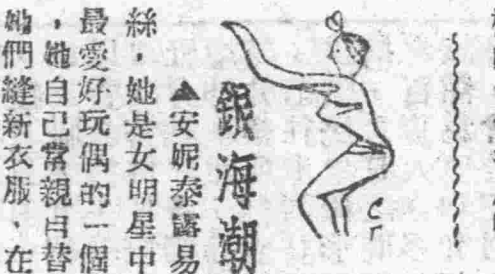 銀海潮
▲安妮泰露易
絲，她是女明星中
最愛好玩偶的一個
，她自己常親自替
她們縫新衣服，在